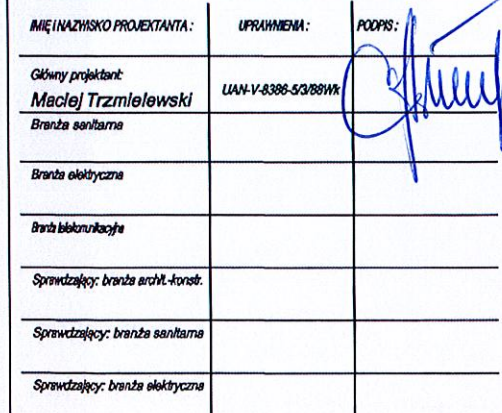 IMIĘ I NAZWISKO PROJEKTANTA : UPRAWNIENIA : PODPIS :
Główny projektant:
Maciej Trzmielewski UAN-V-8386-5/3/88Wk
Branża sanitarna
Branża elektryczna
Branża telekomunikacyjna
Sprawdzający: branża archit.-konstr.
Sprawdzający: branża sanitarna
Sprawdzający: branża elektryczna